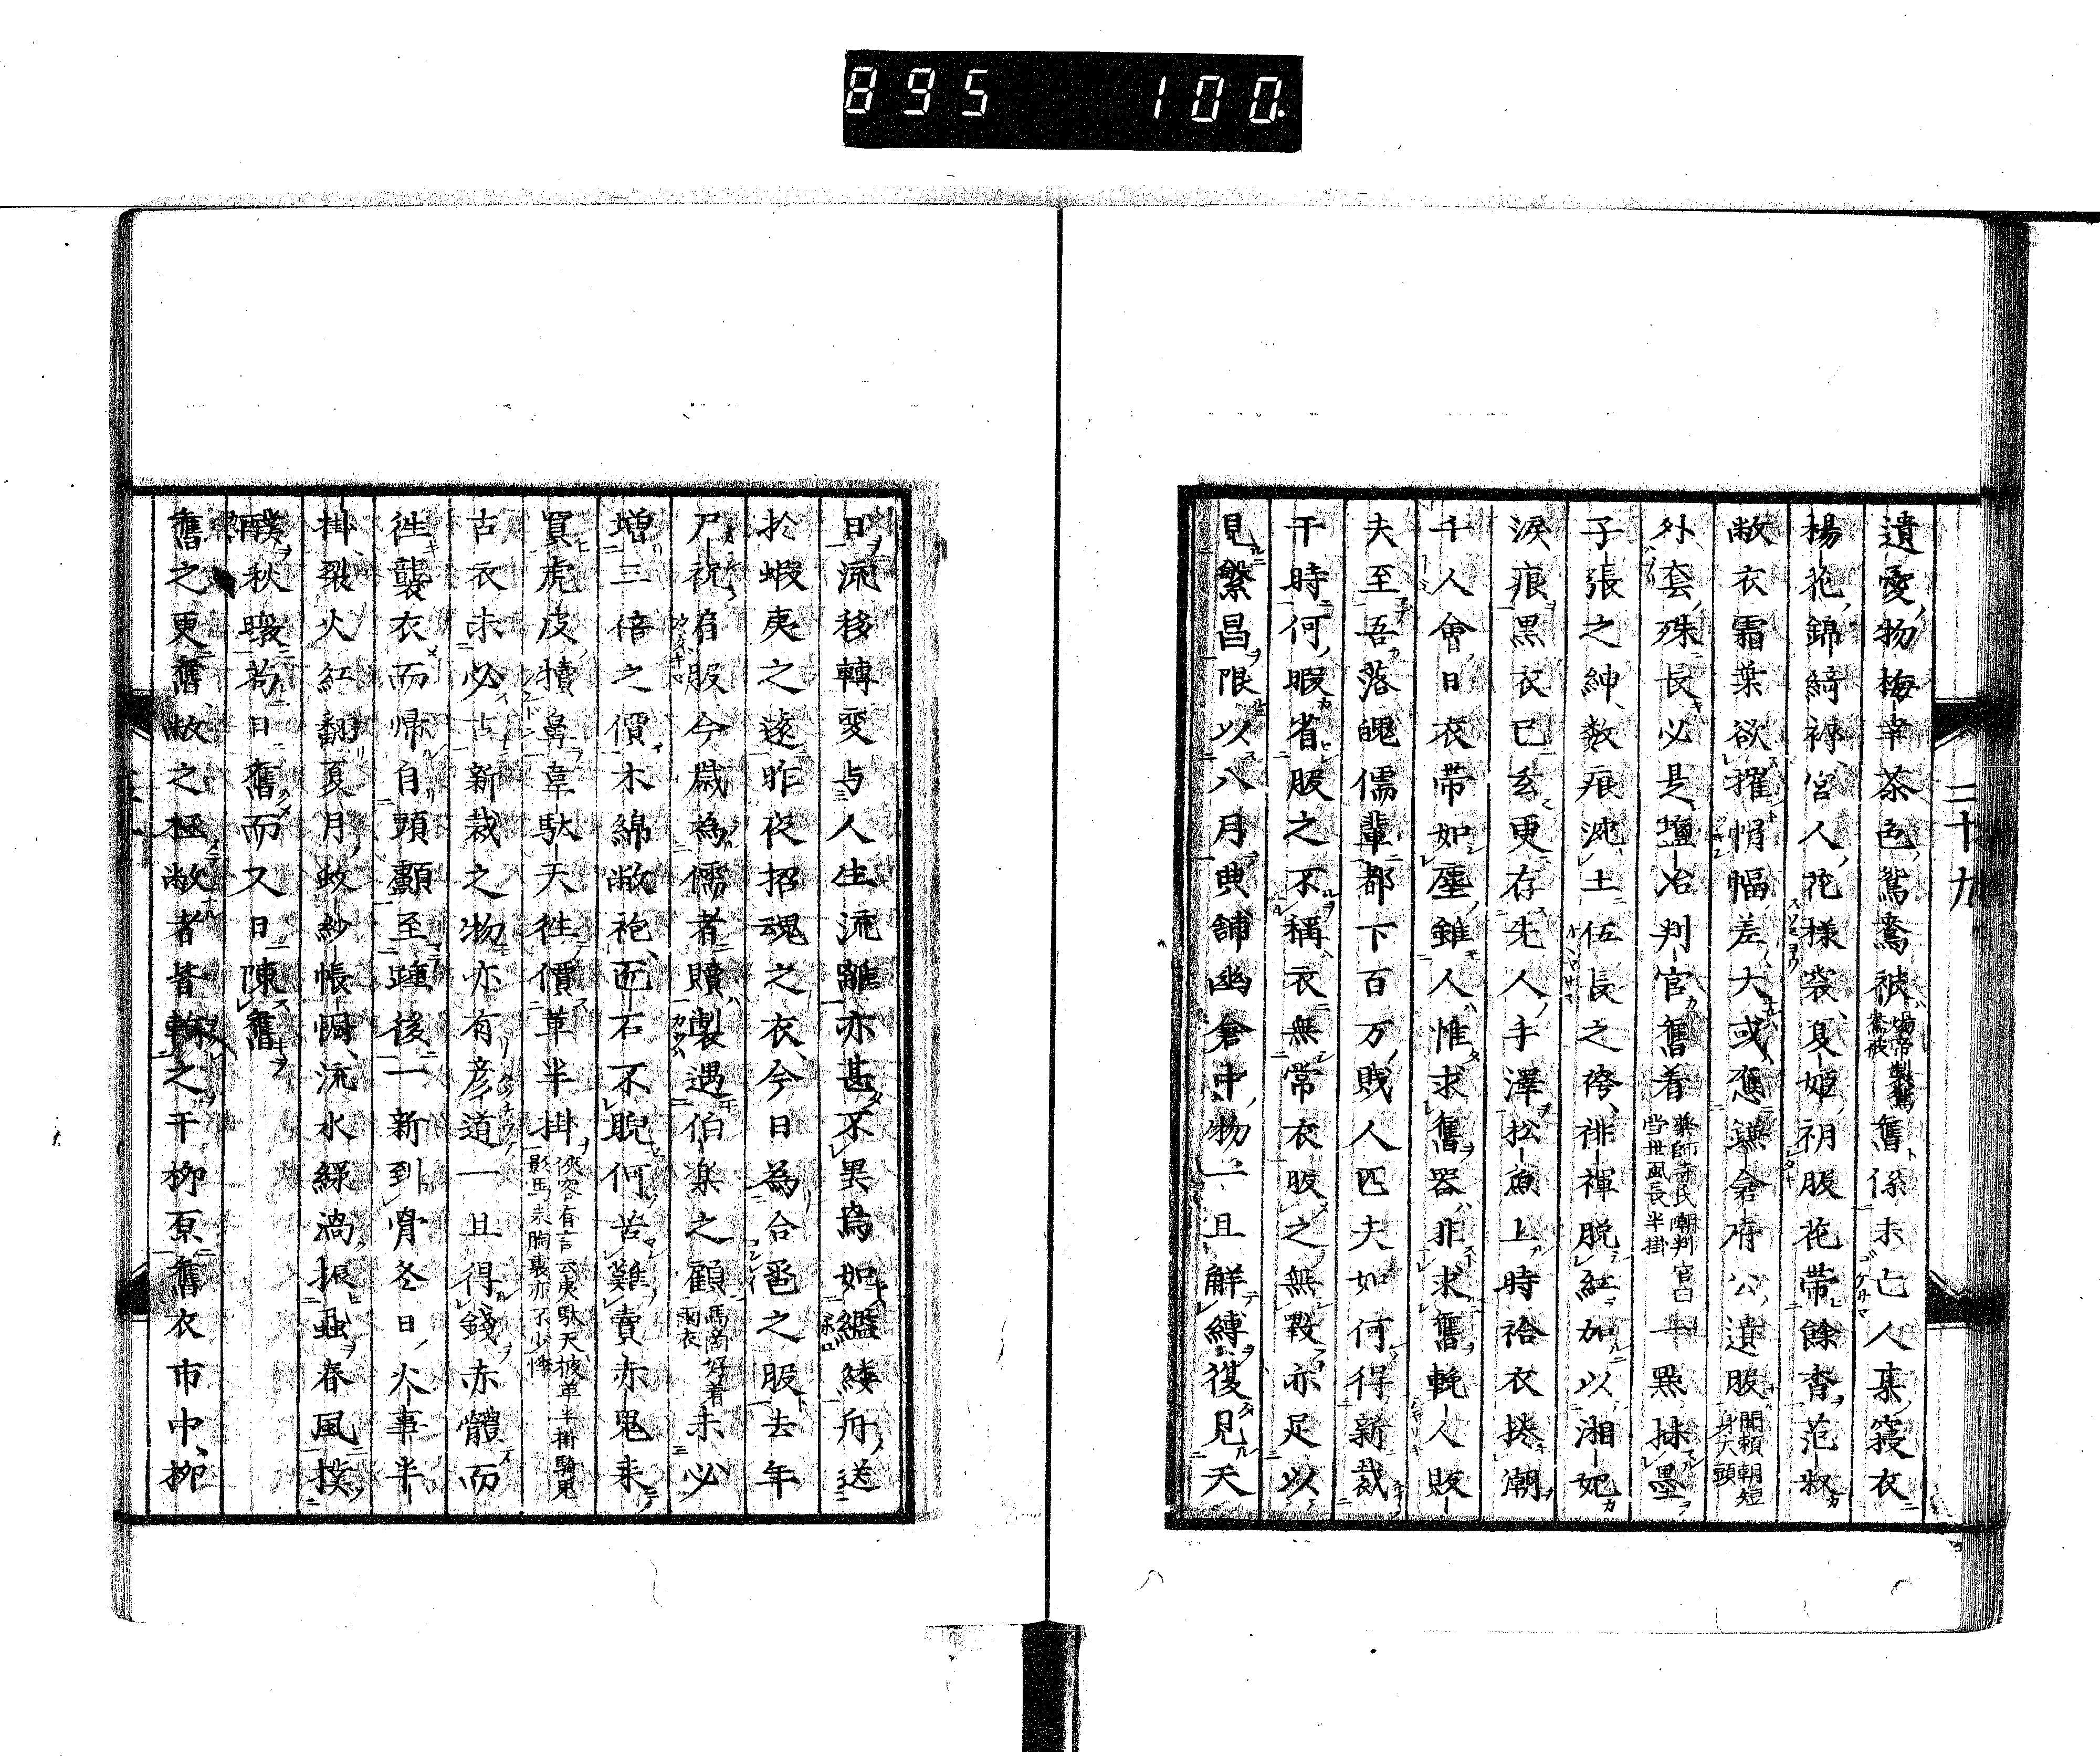 895 100
二十九
遺愛物梅幸茶色鴛鴦被煬帝製鴛鴦被舊係未亡人某寢衣
楊花錦綺褥宮人花樣裳夏姬衵服花帶餘香范叔
敝衣霜葉欲擢帩幅差大或應鎌倉府公遺服聞頼朝短身大頭
外套殊長必是塩冶判官舊着藥師寺氏嘲判官曰当世風長半掛一點抹墨
子張之紳数痕沌土伍長之袴、褌脱紅加以湘妃
淚痕黒衣已玄更存先人手澤松魚上時袷衣捲潮
千人會日衣帶如壥錐人惟求舊器非求舊輓人販
夫至吾落魄儒輩都下百万賎人匹夫如何得新裁
干時何暇省服之不稱衣無常衣服之無斁亦足以
見繁昌限以八月典舖幽倉中物一旦觧縛復見天
日流移轉変与人生流離亦甚不異爲如繿縷舟送
於蝦夷之遠昨夜招魂之衣、今日為合巹之服去年
尸祝有服今嵗為儒者贖製遇伯楽之顧馬商好着雨衣未必
増三倍之價木綿敝袍、匹石不睨何苦難賣赤鬼来
買虎皮犢鼻韋馱天徃價革半掛俠客有言云庚馱天披革半掛騎鬼影馬未胸裏亦了少悸
古衣未必古新裁之物亦有彦道一旦得錢赤體而
徃襲衣而帰自頭顱至踵後一新到骨冬日火事半
掛裂火紅翻夏月蚊紗帳幮、流水緑渦振蝨春風撲
醭秋暾若曰舊而又曰陳舊
舊之更舊敝之極敝者皆輸之干柳原舊衣市中、柳